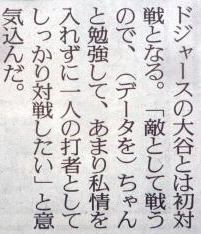 ドジャースの大谷とは初対
戦となる。「敵として戦う
ので、（データを）ちゃん
と勉強して、あまり私情を
入れずに一人の打者として
しっかり対戦したい」と意
気込んだ。